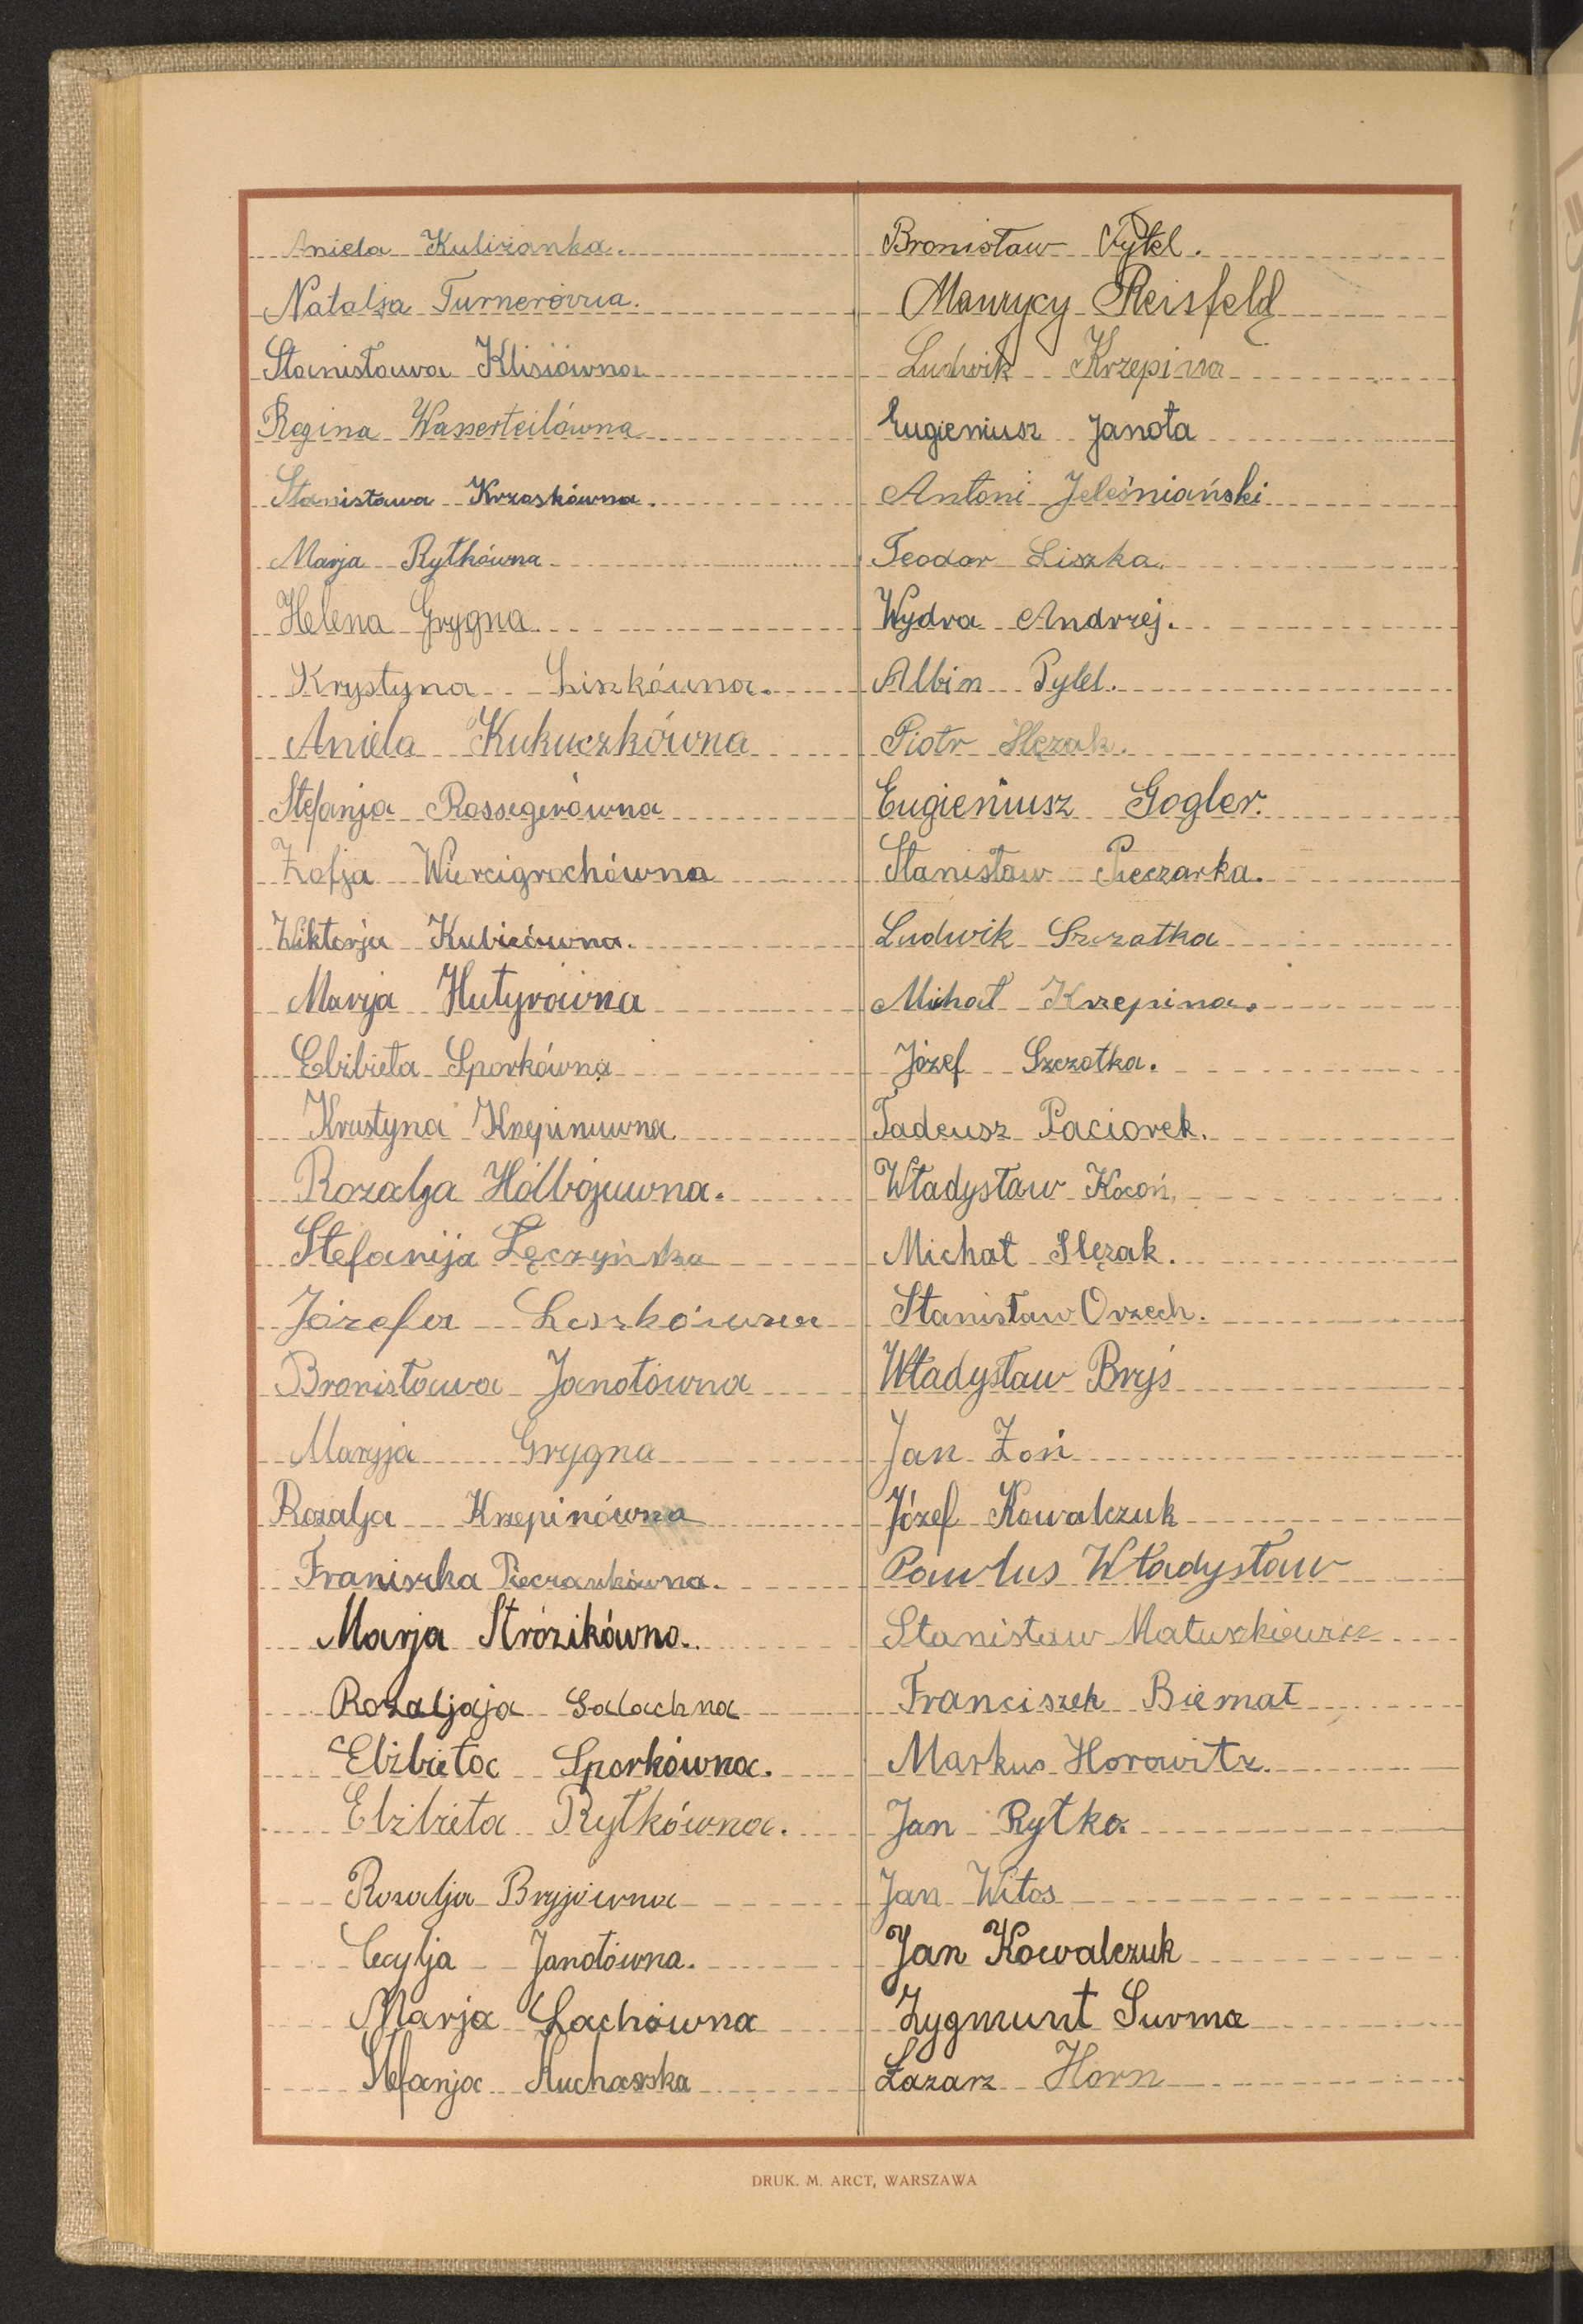 Aniela Kulizanka.
Natalja Turnerówna.
Stanisława Klisiówna
Regina Wasserteilówna
Stanisława Krzaskówna.
Marja Rytkówna
Helena Grygna
Krystyna Liszkówna.
Aniela Kukuczkówna
Stefanja Rossegerówna
Zofja Wiercigrochówna
Wiktorja Kubicówna.
Marija Hutyrówna
Elżbieta Sporkówna
Krustyna Krzepinuwna.
Rozalja Hólbójuwna.
Stefanija Łęczyńska
Józefa Leszkówna
Bronisława Janotówna
Maryja Grygna
Rozalja Krzepinówna
Franiszka Pieczarkówna.
Marja Strózikówna.
Rozaljaja Galachna
Elżbieta Sporkówna.
Elżbieta Rytkówna.
Rozalja Bryjówna
Cecylja Janotówna.
Marja Lachówna
Stefanja Kucharska
Bronisław Pytel.
Maurycy Reisfeld
Ludwik Krzepina
Eugieniusz Janota
Antoni Jeleśniański
Teodor Liszka.
Wydra Andrzej.
Albin Pytel.
Piotr Ślęzak.
Eugieniusz Gogler.
Stanisław Pieczarka.
Ludwik Szczotka
Michał Krzepina.
Józef Szczotka.
Tadeusz Paciorek.
Władysław Kocoń.
Michał Ślęzak.
Stanisław Orzech.
Władysław Bryś
Jan Zoń
Józef Kowalczuk
Pawlus Władysław
Stanisław Matuszkiewicz
Franciszek Biernat
Markus Horowitz.
Jan Rytka
Jan Witos
Jan Kowalczuk
Zygmunt Surma
Łazarz Horn
DRUK. M. ARCT, WARSZAWA